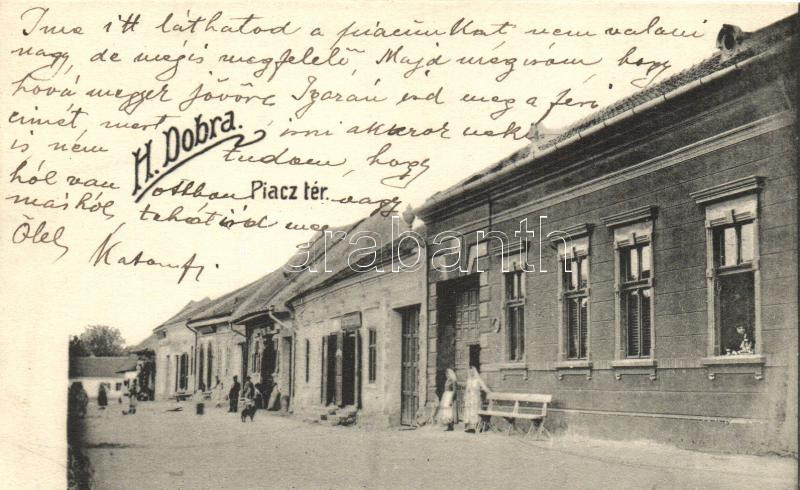 Ime itt láthatod a piaczunkat nem valami
nagy, de mégis megfelelő, Majd megirom hogy
hová megyek jövőre Igazán ird meg a féri
cimét mert irni akarok neki
is nem tudom, hogy
hól van otthon vagy
máshól, tehát ird meg
Ölel
H. Dobra.
Piacz tér.
arabanth